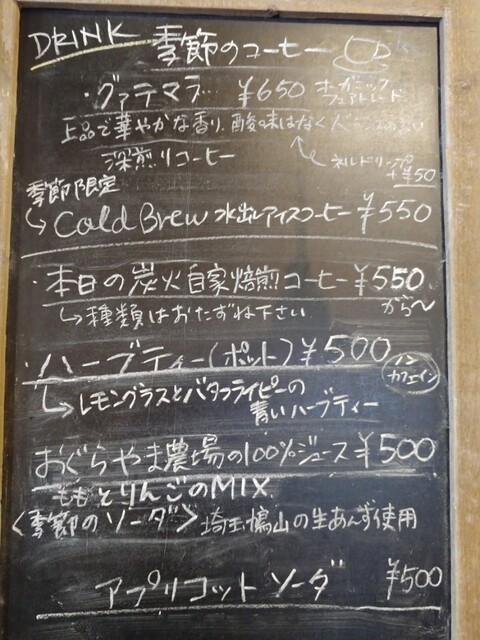 DRINK 季節のコーヒー
・グァテマラ… ¥650 オーガニック フェアトレード
上品で華やかな香り、酸味はなく
深煎りコーヒー ネルドリップ +¥50
季節限定
↳ Cold Brew 水出しアイスコーヒー ¥550
・本日の炭火自家焙煎コーヒー ¥550 から〜
↳ 種類はおたずね下さい
・ハーブティー(ポット) ¥500 ノンカフェイン
↳ レモングラスとバタフライピーの
青いハーブティー
おぐらやま農場の100%ジュース ¥500
ももとりんごのMIX
<季節のソーダ> 埼玉鳩山の生あんず使用
アプリコットソーダ ¥500